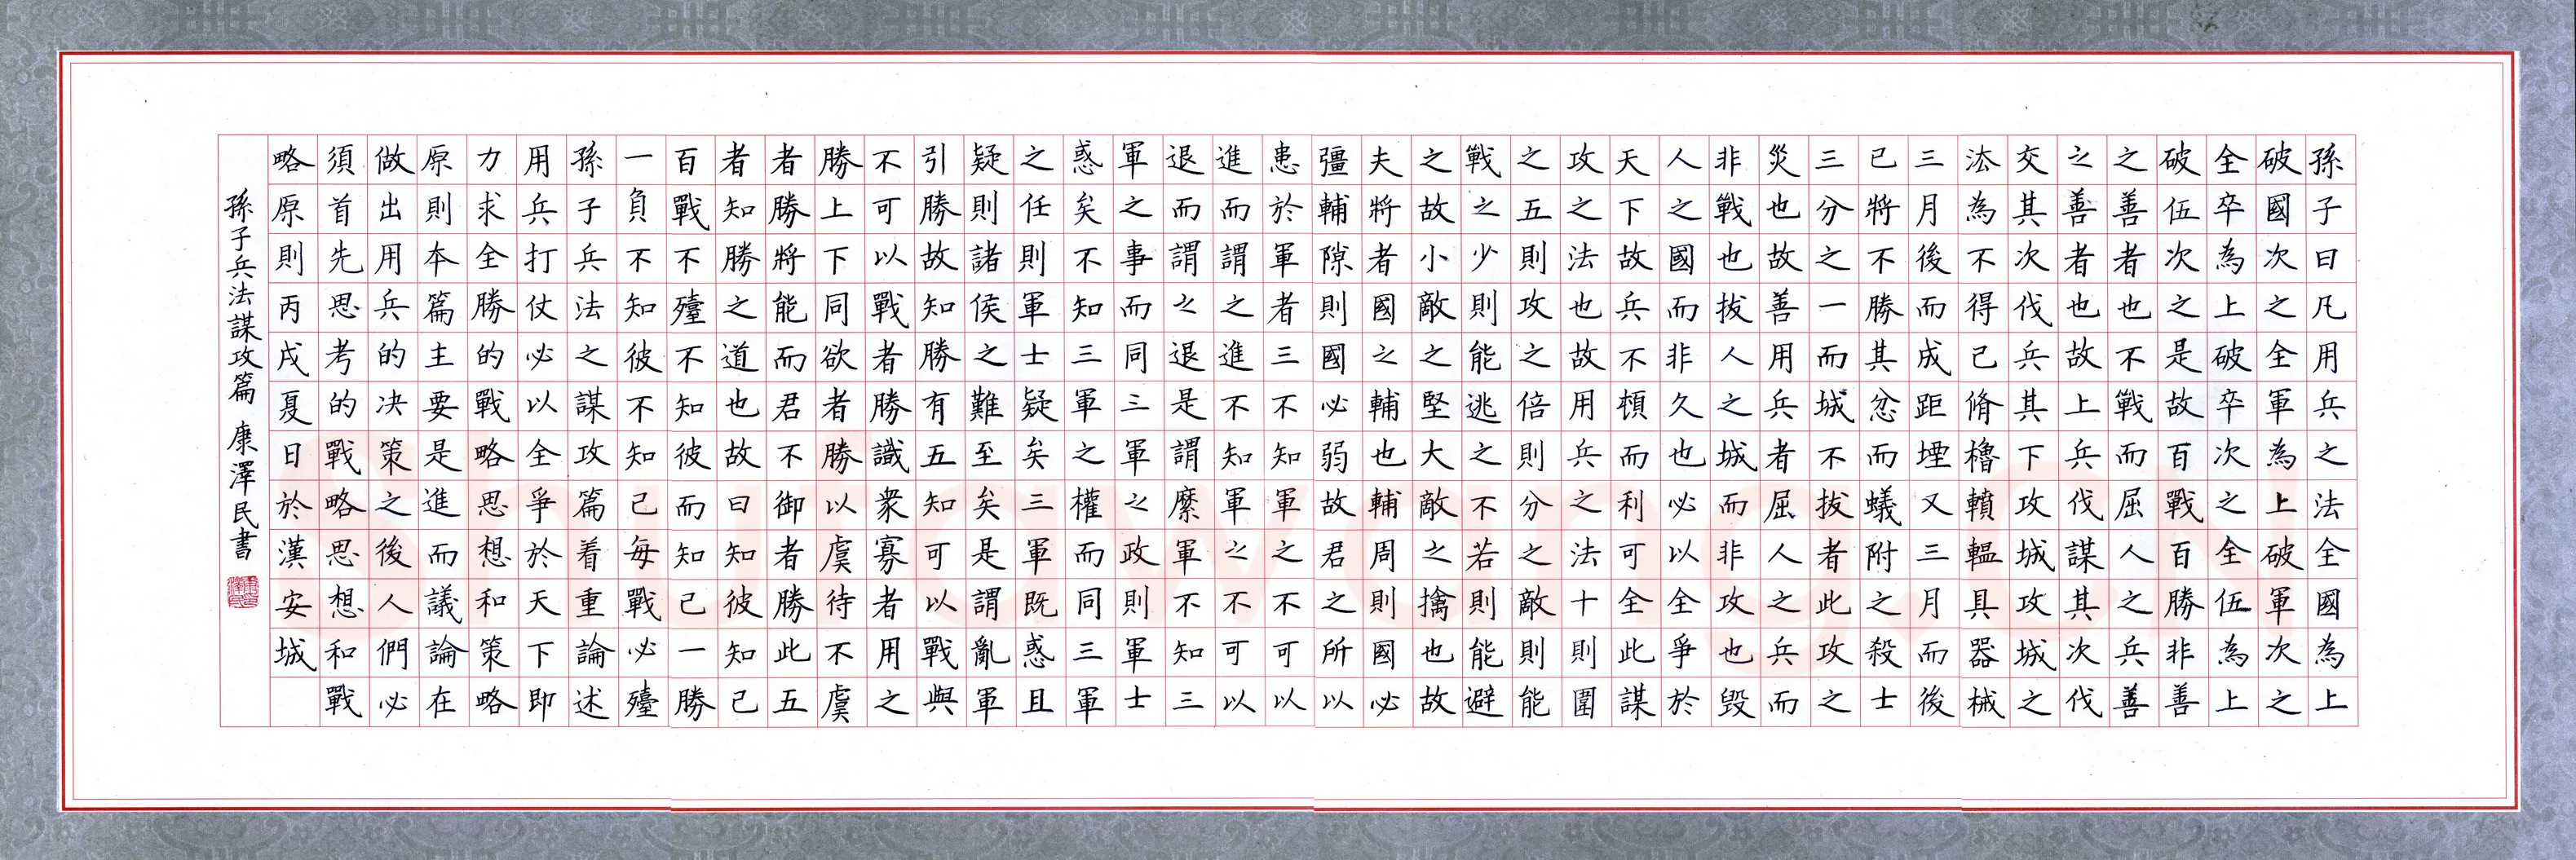 孫子曰凡用兵之法全國為上
破國次之全軍為上破軍次之
全卒為上破卒次之全伍為上
破伍次之是故百戰百勝非善
之善者也不戰而屈人之兵善
之善者也故上兵伐謀其次伐
交其次伐兵其下攻城攻城之
法為不得已脩櫓轒轀具器械
三月後而成距堙又三月而後
已將不勝其忿而蟻附之殺士
三分之一而城不拔者此攻之
災也故善用兵者屈人之兵而
非戰也拔人之城而非攻也毀
人之國而非久也必以全爭於
天下故兵不頓而利可全此謀
攻之法也故用兵之法十則圍
之五則攻之倍則分之敵則能
戰之少則能逃之不若則能避
之故小敵之堅大敵之擒也故
夫將者國之輔也輔周則國必
彊輔隙則國必弱故君之所以
患於軍者三不知軍之不可以
進而謂之進不知軍之不可以
退而謂之退是謂縻軍不知三
軍之事而同三軍之政則軍士
惑矣不知三軍之權而同三軍
之任則軍士疑矣三軍既惑且
疑則諸侯之難至矣是謂亂軍
引勝故知勝有五知可以戰與
不可以戰者勝識衆寡者用之
勝上下同欲者勝以虞待不虞
者勝將能而君不御者勝此五
者知勝之道也故曰知彼知己
百戰不殪不知彼而知己一勝
一負不知彼不知己每戰必殪
孫子兵法之謀攻篇着重論述
用兵打仗必以全爭於天下即
力求全勝的戰略思想和策略
原則本篇主要是進而議論在
做出用兵的决策之後人們必
須首先思考的戰略思想和戰
略原則丙戌夏日於漢安城
孫子兵法謀攻篇 康澤民書
Shufawang.CN